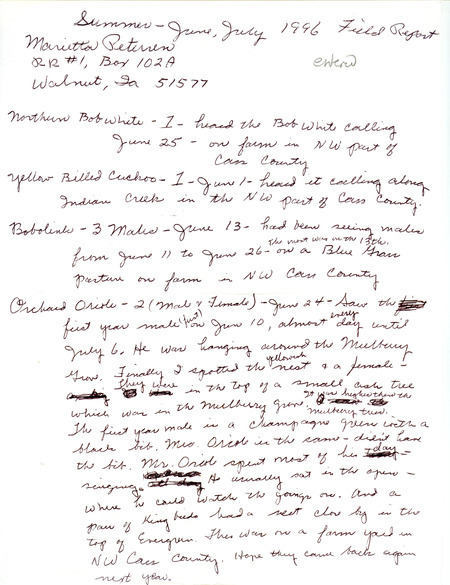 Summer - June, July 1996 Field Report
Marietta Petersen
RR #1, Box 102A
Walnut, Ia 51577
entered
Northern Bob White - 1 - heard the Bob White calling
June 25 - on farm in NW part of
Cass County
Yellow Billed Cuckoo - 1 - June 1 - heard it calling along
Indian Creek in the NW part of Cass County.
Bobolink - 3 Males - June 13 - had been seeing males
the most was on the 13th.
from June 11 to June 26 - on a Blue Grass
Pasture on farm in NW Cass County
Orchard Oriole - 2 (Male & Female) - June 24 - Saw the
first year male (first) on June 10, almost every day until
July 6. He was hanging around the Mulberry
Grove. Finally I spotted the nest & a yellowish female -
They were in the top of a small ash tree
which was in the Mulberry Grove. It was higher than the
mulberry trees.
The first year male is a champagne green with a
black bib. Mrs. Oriole is the same - didn't have
the bib. Mr. Oriole spent most of his day -
singing. He usually sat in the open -
where he could watch the goings on. And a
pair of Kingbirds had a nest close by in the
top of Evergreen. This was on a farm yard in
NW Cass County. Hope they come back again
next year.